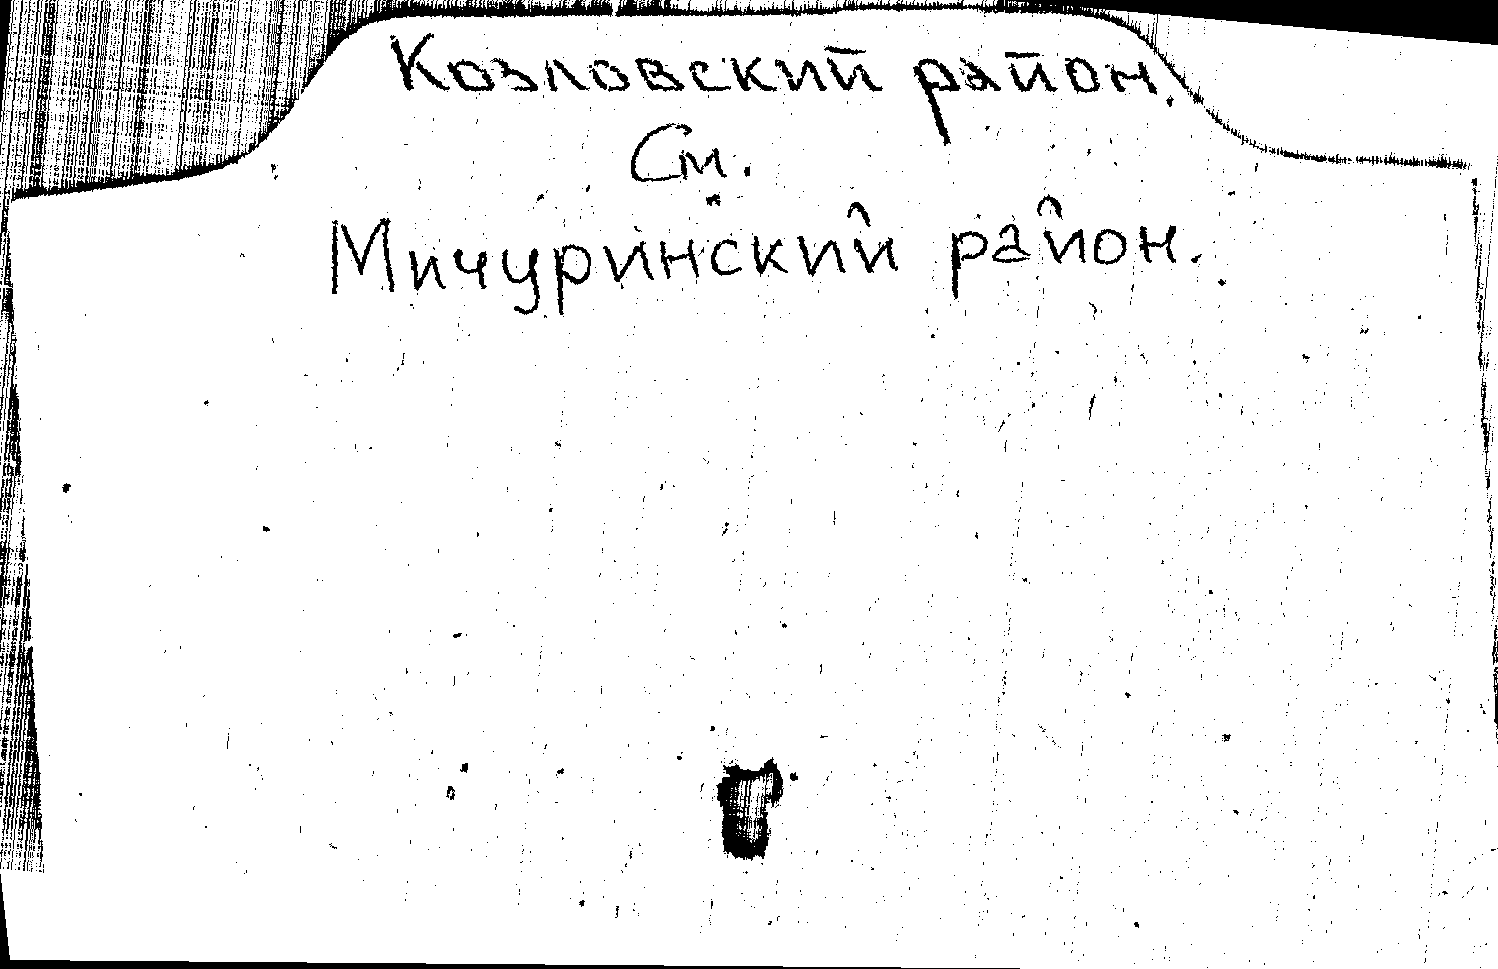 Козловский район.
См.
Мичуринский район.